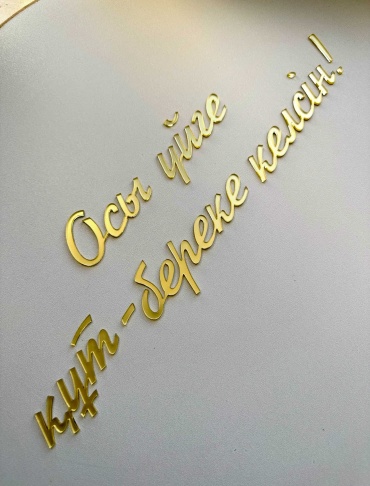 Осы үйге
құт-береке келсін!